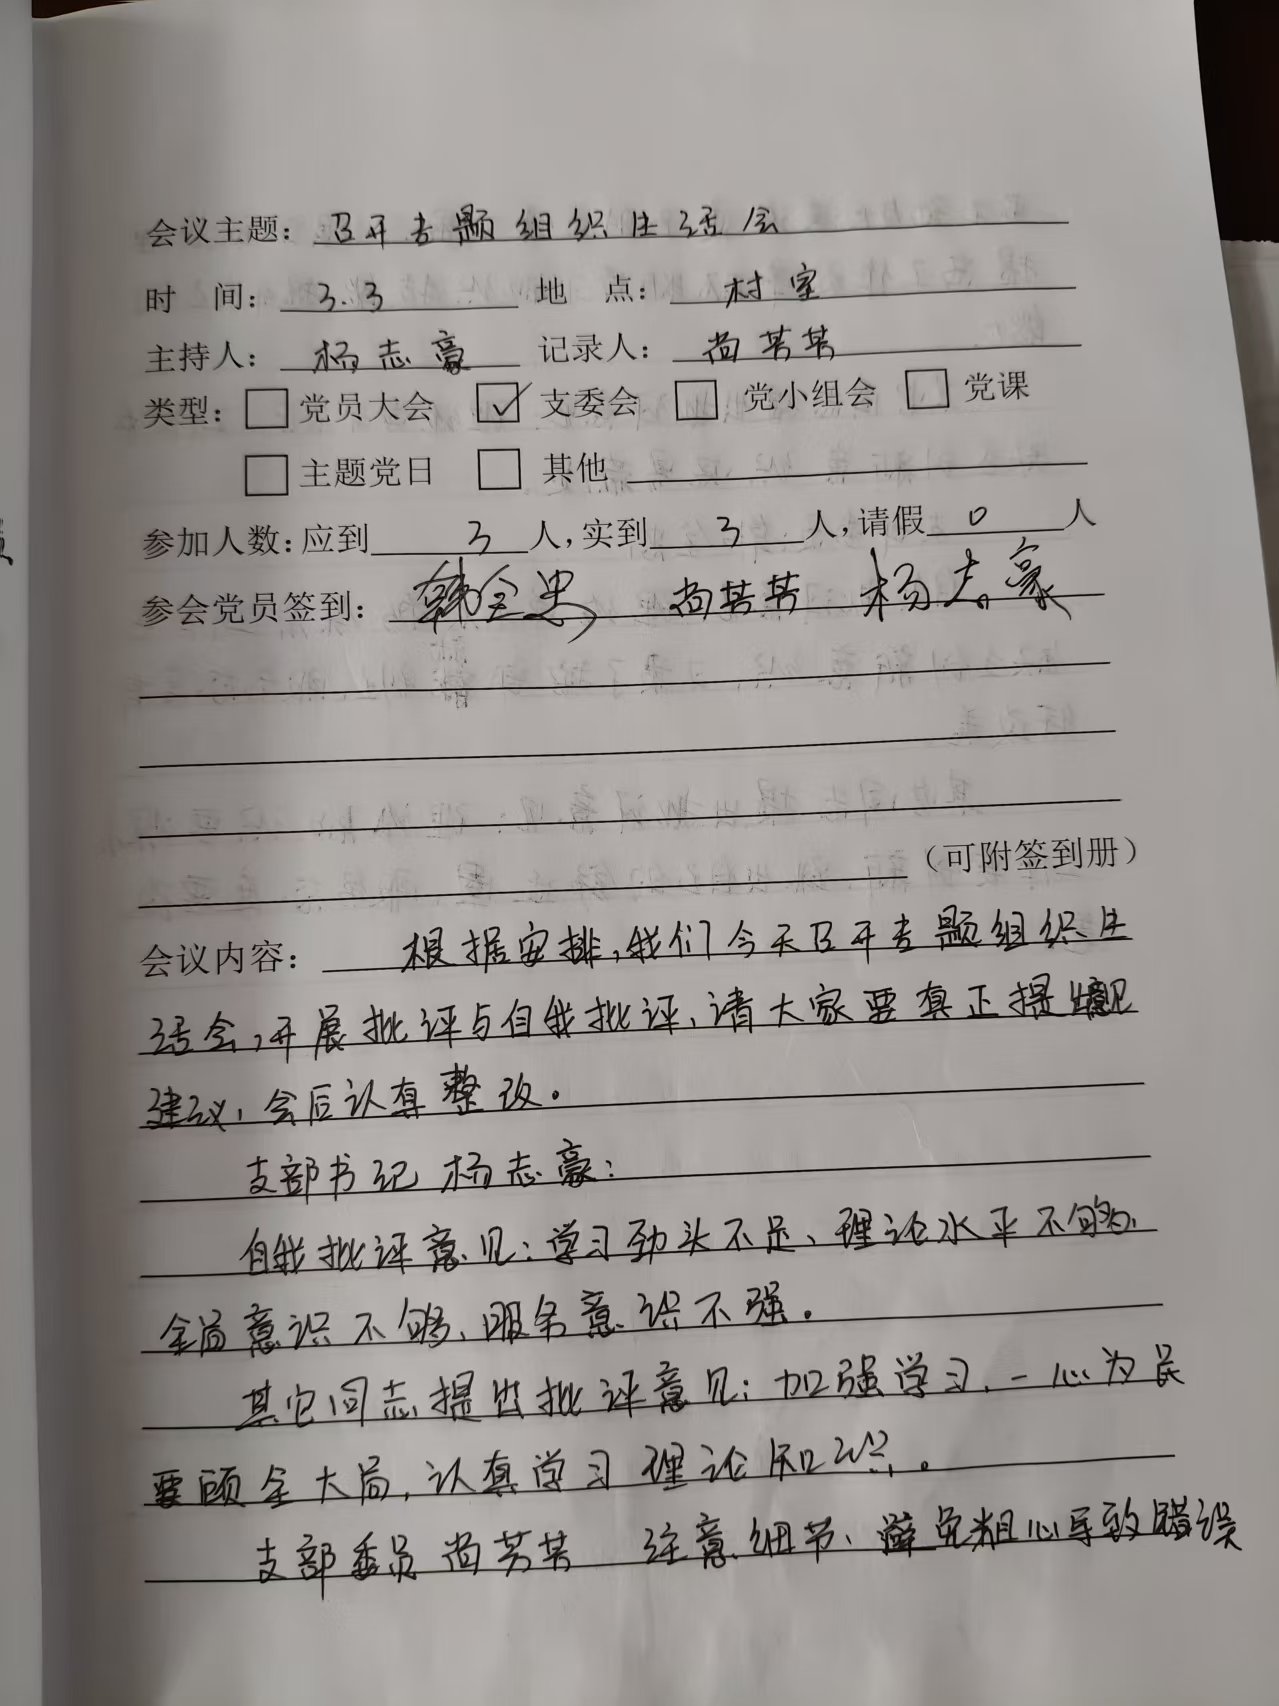 会议主题：召开专题组织生活会
时 间：3.3 地 点：村室
主持人：杨志豪 记录人：尚芳芳
类型：□党员大会 ☑支委会 □党小组会 □党课
□主题党日 □其他
参加人数：应到3人，实到3人，请假0人
参会党员签到：韩全忠 尚芳芳 杨志豪
（可附签到册）
会议内容：根据安排，我们今天召开专题组织生
活会，开展批评与自我批评，请大家要真正提出意见
建议，会后认真整改。
支部书记杨志豪：
自我批评意见：学习劲头不足、理论水平不够、
全局意识不够、服务意识不强。
其它同志提出批评意见：加强学习、一心为民
要顾全大局，认真学习理论知识。
支部委员尚芳芳 注意细节、避免粗心导致错误